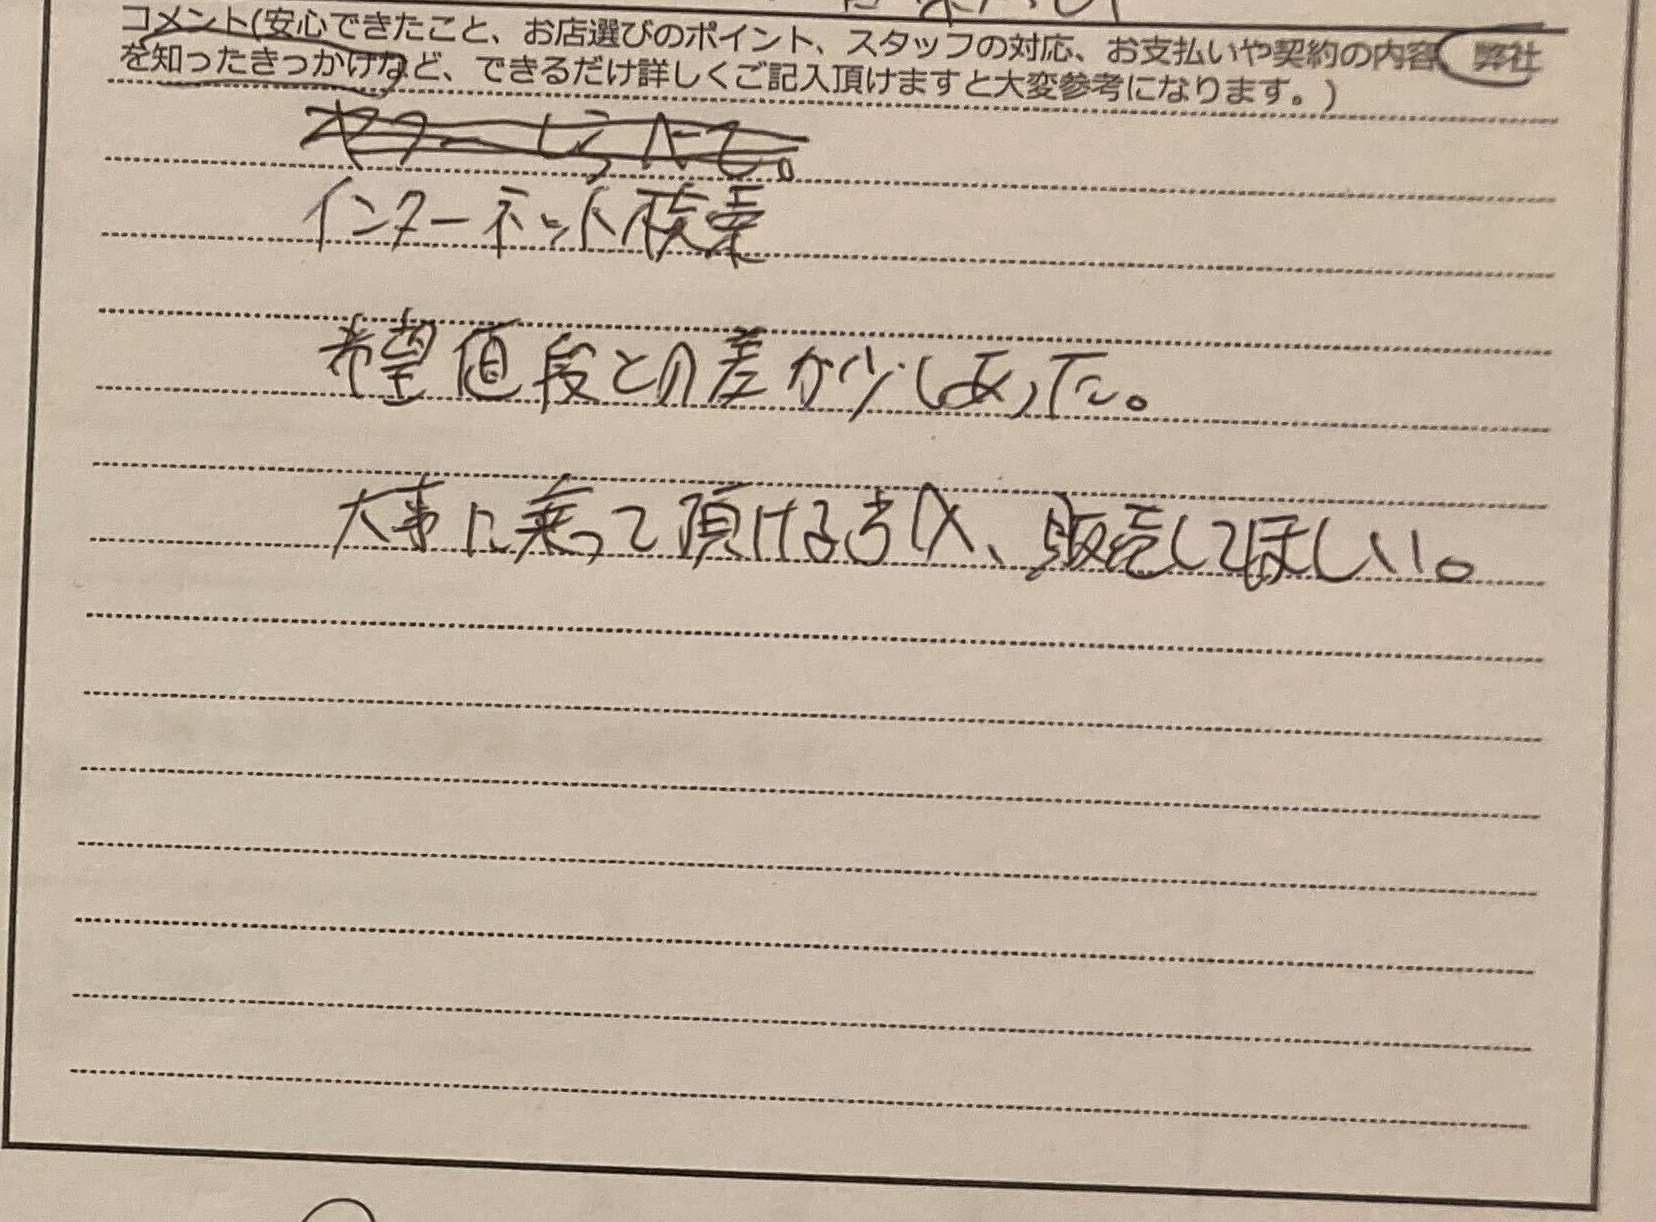 コメント(安心できたこと、お店選びのポイント、スタッフの対応、お支払いや契約の内容、弊社
を知ったきっかけなど、できるだけ詳しくご記入頂けますと大変参考になります。)
インターネット検索
希望値段との差が少しあった。
大事に乗って頂ける方へ、販売してほしい。